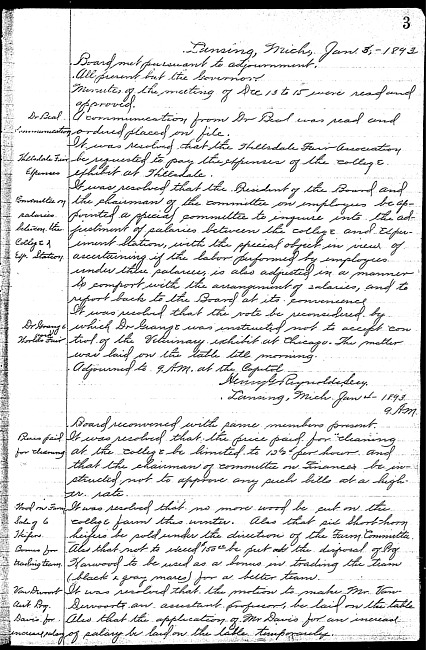 3
Lansing, Mich, Jan 3, - 1893
Board met pursuant to adjournment.
All present but the Governor
Minutes of the meeting of Dec 13 to 15 were read and
approved.
Dr Beal
communication
A communication from Dr Beal was read and
ordered placed on file.
Hillsdale Fair
Expenses
It was resolved that the Hillsdale Fair Association
be requested to pay the expenses of the college
exhibit at Hillsdale.
Committee on
salaries
between the
College &
Exp. Station
It was resolved that the President of the Board and
the chairman of the committee on employees be ap-
pointed a special committee to inquire into the ad-
justment of salaries between the college and Exper-
iment Station, with the special object in view of
ascertaining if the labor performed by employees
under these salaries, is also adjusted in a manner
to comport with the arrangement of salaries, and to
report back to the Board at its convenience
Dr. Grange
World's Fair
It was resolved that the vote be reconsidered by
which Dr Grange was instructed not to accept con
trol of the Veterinary exhibit at Chicago. The matter
was laid on the table till morning.
Adjourned to 9 A.M. at the Capitol
Henry G Reynolds Secy.
Lansing, Mich Jan 4 - 1893
9 A.M.
Board reconvened with same members present.
Price paid
for cleaning
It was resolved that the price paid for cleaning
at the college be limited to per hour and
that the chairman of committee on Finance be in
structed not to approve any such bills at a high-
er rate.
Wood on Farm
Sale of 6
Heifers
It was resolved that no more wood be cut on the
college farm this winter. Also that six Short horn
heifers be sold under the direction of the Farm Committee
Bonus for
trading team
Also that not to exceed be put at the disposal of
Harwood to be used as a bonus in trading the team
(black & gray mares) for a better team.
Van Dervort
Asst Prof.
Davis for
increased salary
It was resolved that the motion to make Mr. Van
Dervoort an assistant professor, be laid on the table
Also that the application of Mr Davis for an increase
of salary be laid on the table temporarily